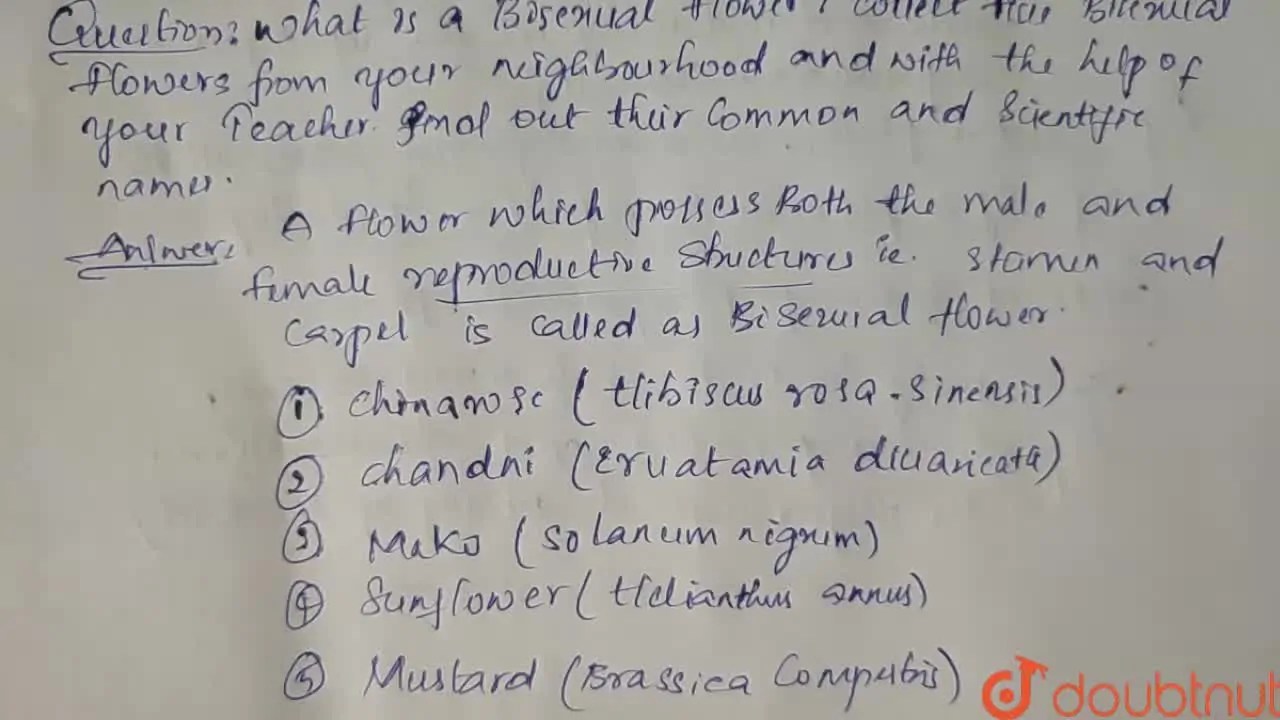 Question: What is a Bisexual flower? Collect five Bisexual
flowers from your neighbourhood and with the help of
your Teacher find out their Common and Scientific
names.
Answer: A flower which possess Both the male and
female reproductive structures ie. stamen and
Carpel is called as Bisexual flower.
① Chinarose (Hibiscus rosa-sinensis)
② Chandni (Ervatamia divaricata)
③ Mako (Solanum nigrum)
④ Sunflower (Helianthus annus)
⑤ Mustard (Brassica Compestris)
doubtnut